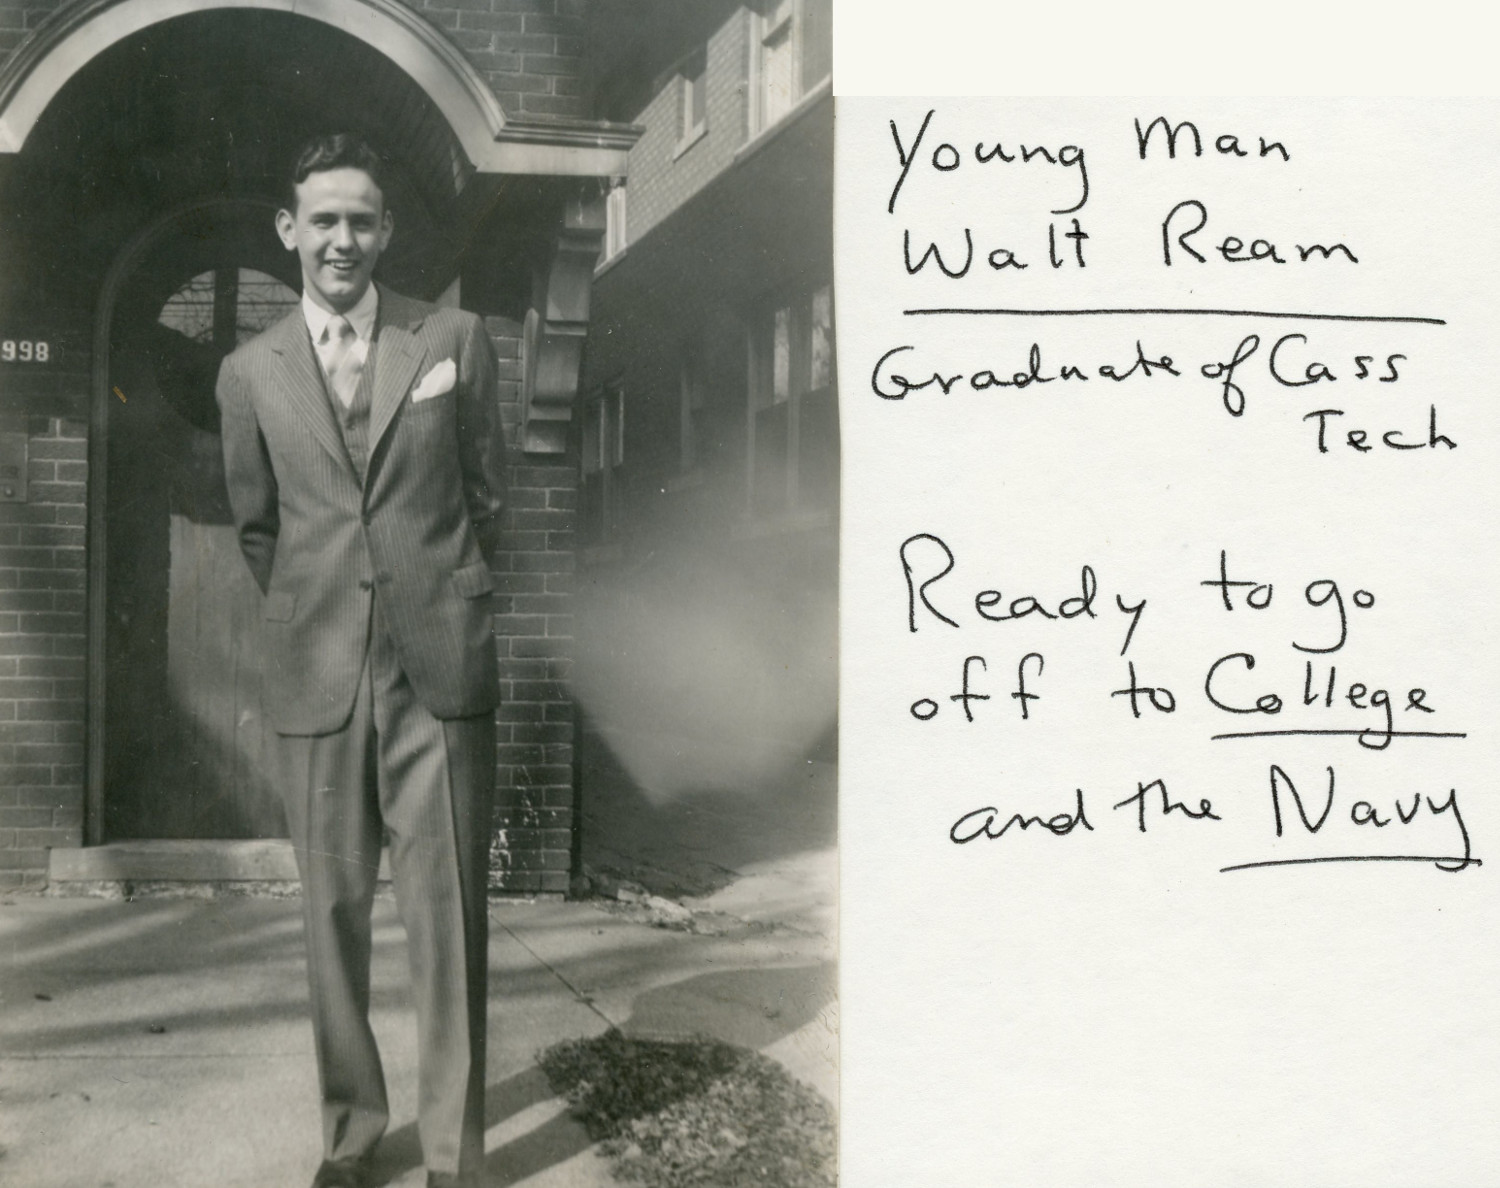 998
Young Man
Walt Ream
Graduate of Cass
Tech
Ready to go
off to College
and the Navy